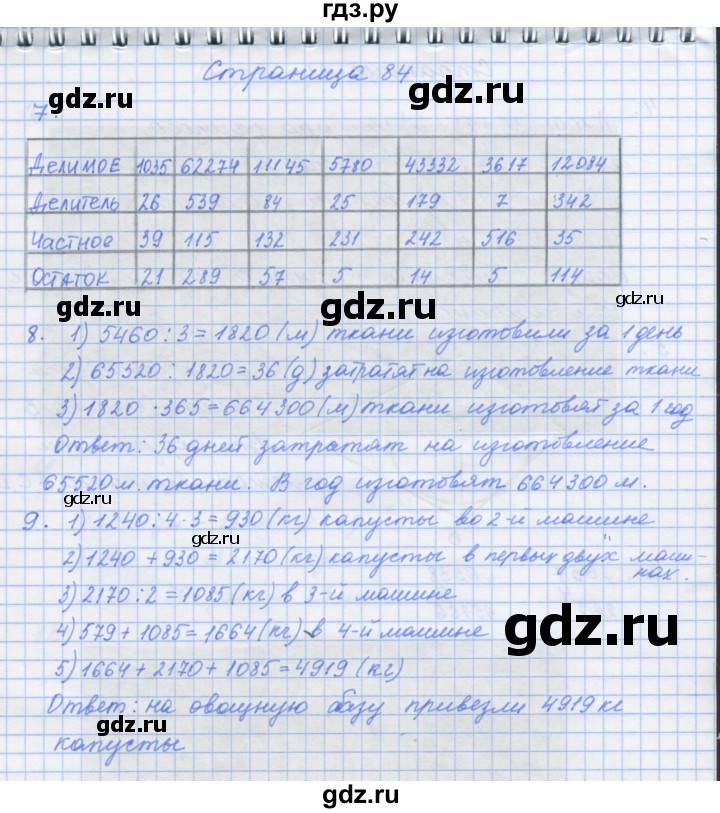 гдз.ру
Страница 84
gdz.ru gdz.ru
7.
Делимое 1035 62274 11145 5780 43332 3617 12084
Делитель 26 539 84 25 179 7 342
Частное 39 115 132 231 242 516 35
Остаток 21 289 57 5 14 5 114
gdz.ru gdz.ru
8. 1) 5460 : 3 = 1820 (м) ткани изготовили за 1 день
2) 65520 : 1820 = 36 (д) затратят на изготовление ткани
3) 1820 · 365 = 664300 (м) ткани изготовят за 1 год
Ответ: 36 дней затратят на изготовление
65520 м. ткани. В год изготовят 664300 м.
gdz.ru
9. 1) 1240 : 4 · 3 = 930 (кг) капусты во 2-й машине
gdz.ru
2) 1240 + 930 = 2170 (кг) капусты в первых двух маши-
нах.
3) 2170 : 2 = 1085 (кг) в 3-й машине
4) 579 + 1085 = 1664 (кг) в 4-й машине
gdz.ru
5) 1664 + 2170 + 1085 = 4919 (кг)
Ответ: на овощную базу привезли 4919 кг
gdz.ru
капусты
gdz.ru